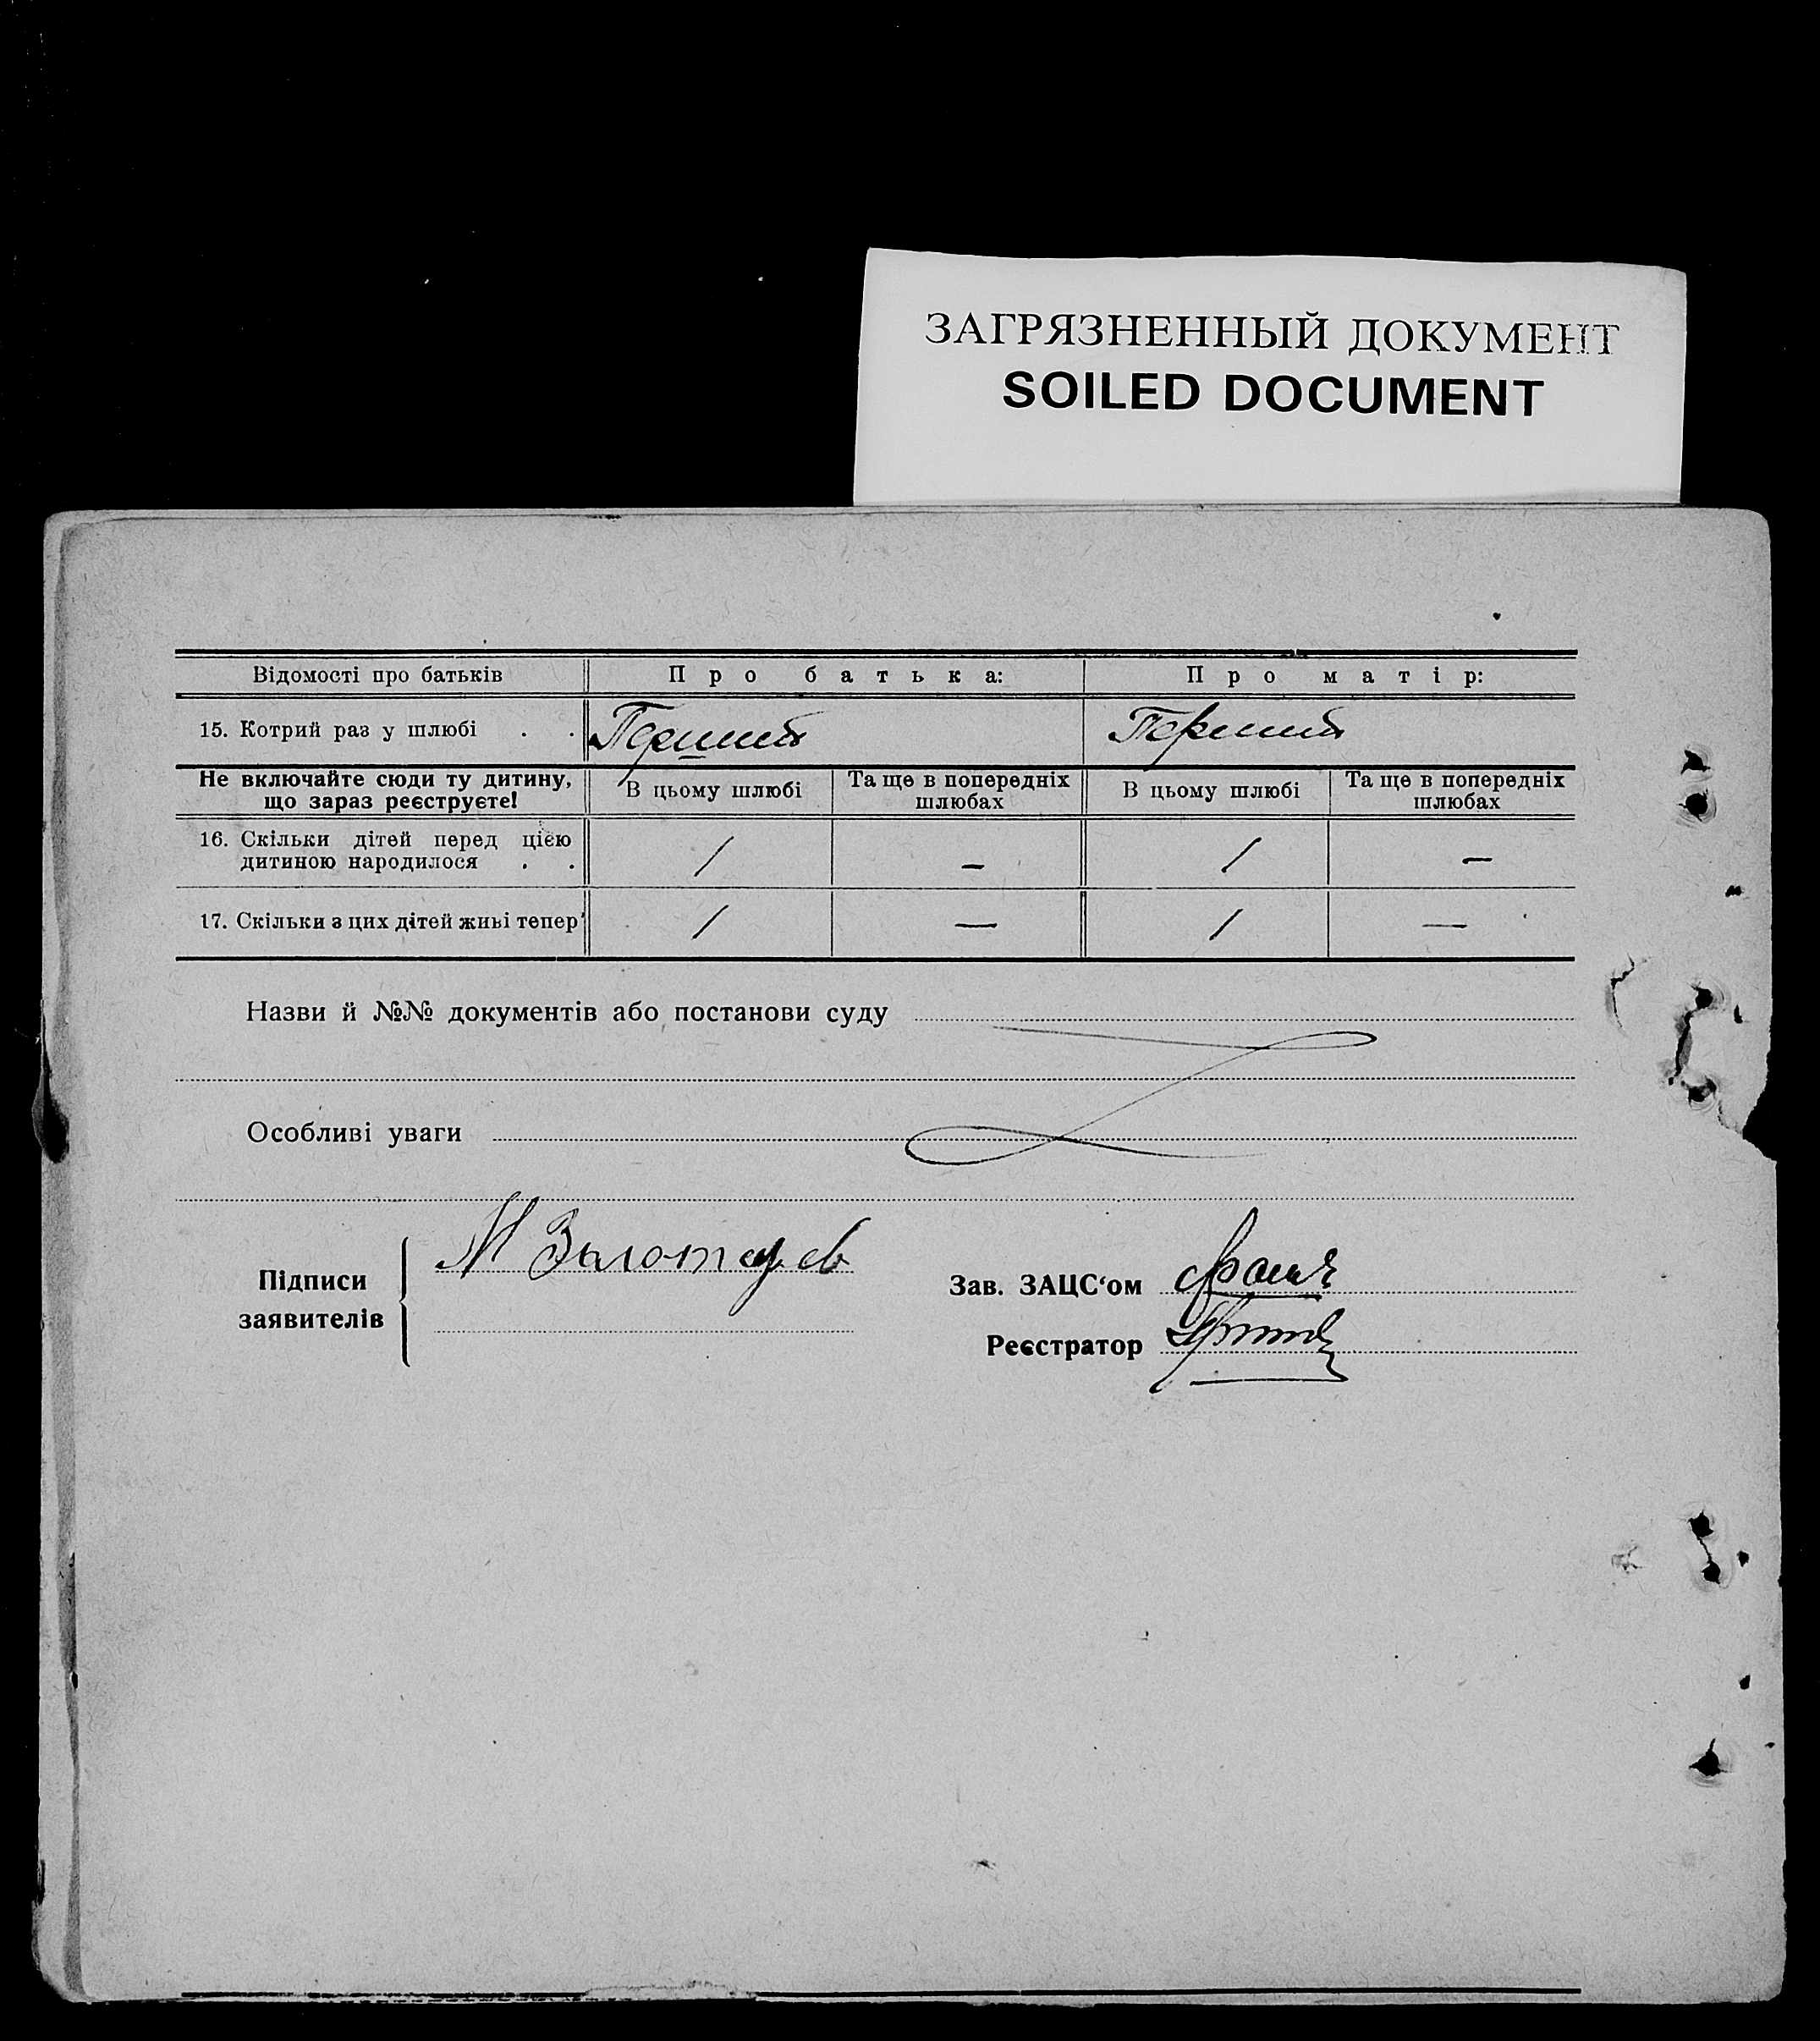 ЗАГРЯЗНЕННЫЙ ДОКУМЕНТ
SOILED DOCUMENT
Відомості про батьків Про батька: Про матір:
15. Котрий раз у шлюбі . . Перший Перший
Не включайте сюди ту дитину, що зараз реєструєте! В цьому шлюбі Та ще в попередніх шлюбах В цьому шлюбі Та ще в попередніх шлюбах
16. Скільки дітей перед цією
дитиною народилося . . / — / —
17. Скільки з цих дітей живі тепер / — / —
Назви й №№ документів або постанови суду
Особливі уваги
Підписи заявителів М Золотарев
Зав. ЗАЦС‘ом
Реєстратор